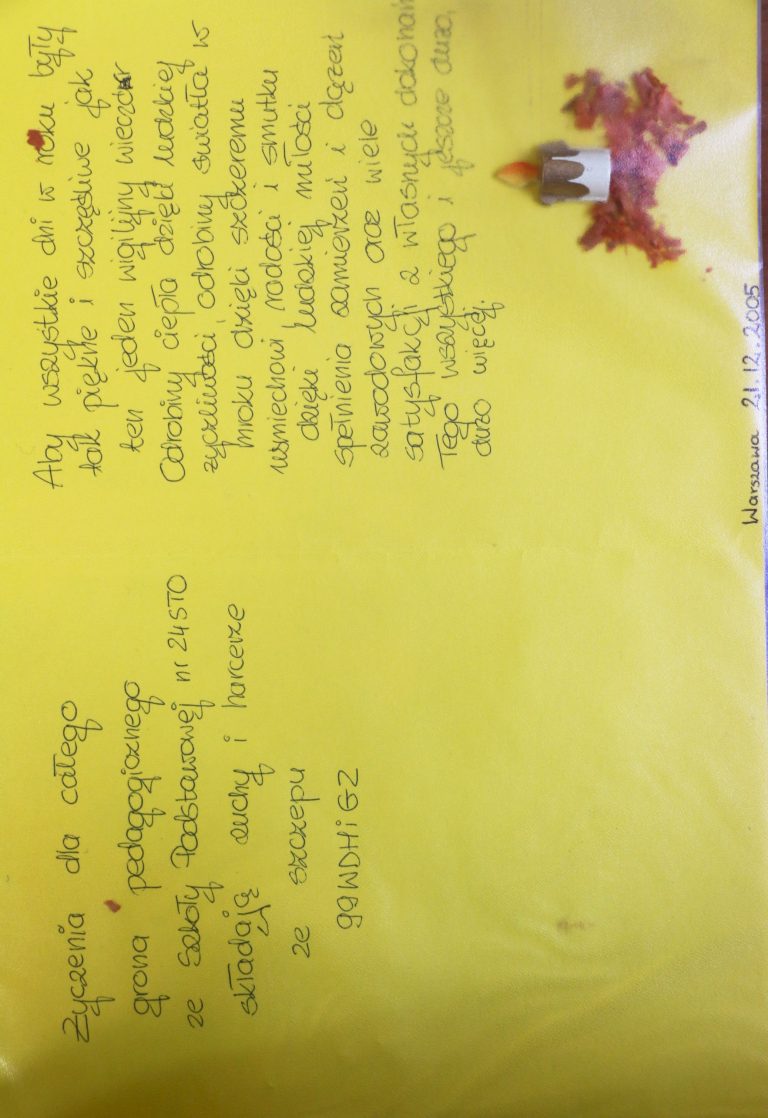 Życzenia dla całego
grona pedagogicznego
ze Szkoły Podstawowej nr 24 STO
składają zuchy i harcerze
ze szczepu
99 WDHiGZ
Aby wszystkie dni w roku były
tak piękne i szczęśliwe jak
ten jeden wigilijny wieczór
Odrobiny ciepła dzięki ludzkiej
życzliwości odrobiny światła w
mroku dzięki szczeremu
uśmiechowi radości i smutku
dzięki ludzkiej miłości
spełnienia zamierzeń i dążeń
zawodowych oraz wiele
satysfakcji z własnych dokonań
Tego wszystkiego i jeszcze dużo,
dużo więcej.
Warszawa 21.12.2005